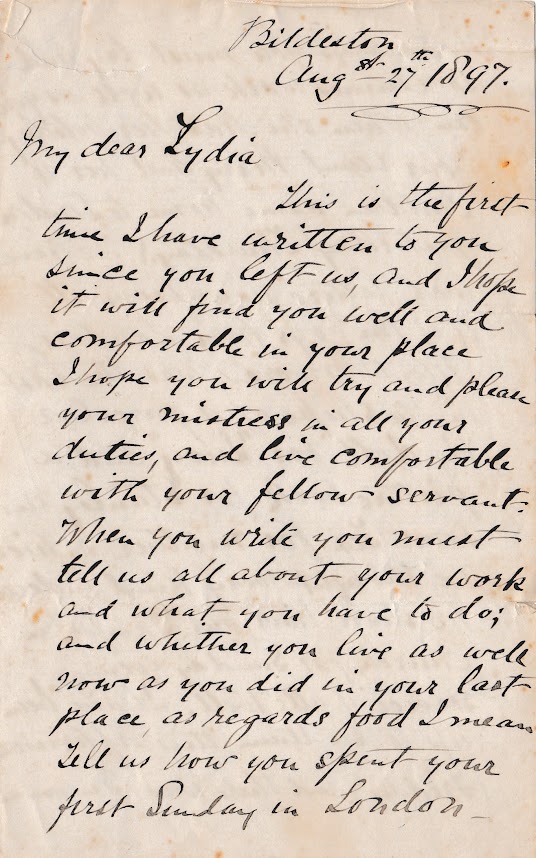 Bildeston
Augst 27th 1897.
My dear Lydia
This is the first
time I have written to you
since you left us, and I hope
it will find you well and
comfortable in your place
I hope you will try and please
your mistress in all your
duties, and live comfortable
with your fellow servant.
When you write you must
tell us all about your work
and what you have to do;
and whether you live as well
now as you did in your last
place, as regards food I mean
Tell us how you spent your
first Sunday in London_